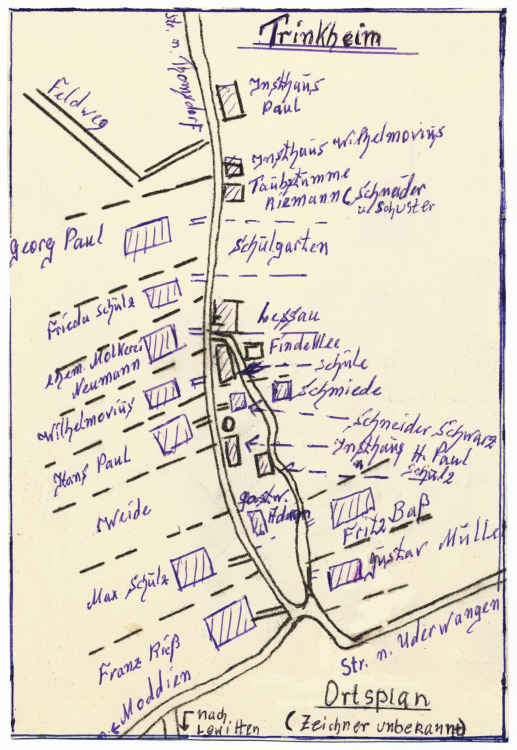 Trinkheim
Str. n. Thomsdorf
Feldweg
Insthaus
Paul
Insthaus Wilhelmovius
Taubstumme
Niemann (Schneider
u. Schuster
Georg Paul
Schulgarten
Frieda Schulz
Lessau
ehem. Molkerei
Neumann
Findeklee
Schule
Schmiede
Wilhelmovius
Schneider Schwarz
Insthaus H. Paul
Schulz
Hans Paul
Weide
Gastw.
Fritz Baß
Gustav Müller
Max Schulz
Franz Rieß
n. Moddien
nach
Lewitten
Str. n. Uderwangen
Ortsplan
(Zeichner unbekannt)